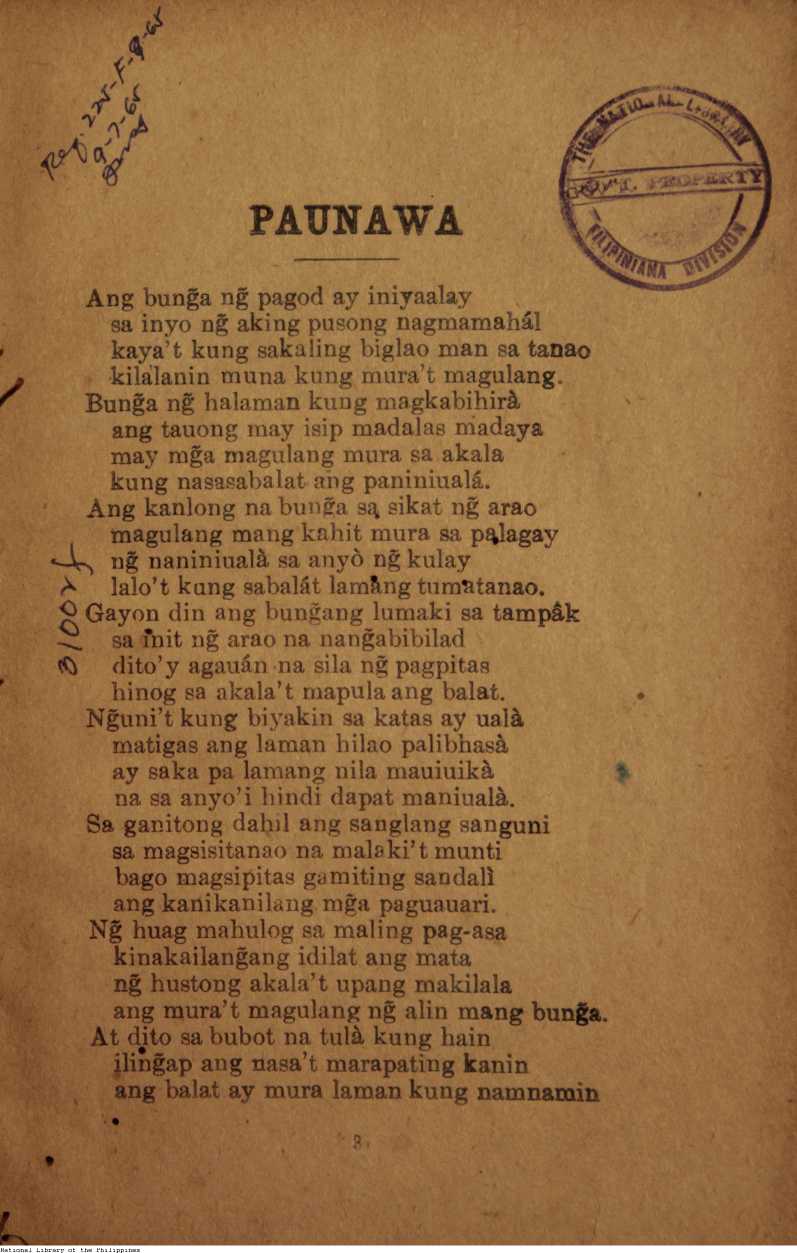 THE NATIONAL LIBRARY
GOV'T. PROPERTY
FILIPINIANA DIVISION
PAUNAWA
Ang bung̃a ng̃ pagod ay iniyaalay
sa inyo ng̃ aking pusong nagmamahál
kaya't kung sakaling biglao man sa tanao
kilalanin muna kung mura't magulang.
Bung̃a ng̃ halaman kung magkabihirà
ang tauong may isip madalas madaya
may mg̃a magulang mura sa akala
kung nasasabalat ang paniniualá.
Ang kanlong na bung̃a sa sikat ng̃ arao
magulang mang kahit mura sa palagay
ng̃ naniniualà sa anyò ng̃ kulay
lalo't kung sabalát lamang tumatanao.
Gayon din ang bung̃ang lumaki sa tampák
sa init ng̃ arao na nang̃abibilad
dito'y agauán na sila ng̃ pagpitas
hinog sa akala't mapula ang balat.
Ng̃uni't kung biyakin sa katas ay ualà
matigas ang laman hilao palibhasà
ay saka pa lamang nila mauiuikà
na sa anyo'i hindi dapat maniualà.
Sa ganitong dahil ang sanglang sanguni
sa magsisitanao na malaki't munti
bago magsipitas gamiting sandalì
ang kanikanilang mg̃a paguauari.
Ng̃ huag mahulog sa maling pag-asa
kinakailang̃ang idilat ang mata
ng̃ hustong akala't upang makilala
ang mura't magulang ng̃ alin mang bung̃a.
At dito sa bubot na tulà kung hain
iling̃ap ang nasa't marapating kanin
ang balat ay mura laman kung namnamin
3
National Library of the Philippines